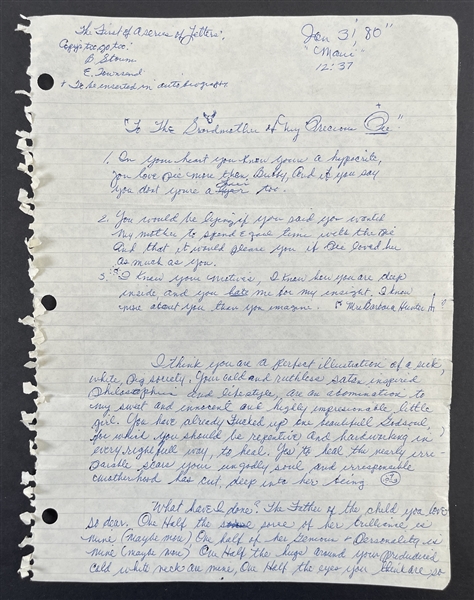 The First of a series of Letters,
Copys too go too:
B Storm
E. Townsend
+ To be inserted in autobiography
Jan 3' 80"
"Maui"
12:37
"To The Grandmother of my Precious Dee"
1. In your heart you know your a hypocrite,
you love Dee more then Bubby, And if you say
you dont youre a too.
2. You would be lying if you said you wanted
my mother to spend equal time with the Dee
And that it would please you if Dee loved her
as much as you.
3. I know your motives, I know how you are deep
inside, and you hate me for my insight. I know
more about you then you imagine. Mrs Barbara Hunter
I think you are a perfect illustration of a sick,
white, pig society. Your cold and ruthless satan inspired
and lifestyle, are an abomination to
my sweet and innocent and highly impressionable little
girl. You have already fucked up one beautiful Godsoul,
for which you should be repentive and hardworking in
every rightfull way, to heal. Yes to heal the nearly irre-
parable scars your ungodly soul and irresponsible
motherhood has cut, deep into her being
What have I done? The Father of the child you love
so dear. One Half the sorce of her brillience is
mine (maybe more) One half of her Genious + Personality is
mine (maybe more) One Half the hugs around your
cold white neck are mine, One Half the eyes you think are so